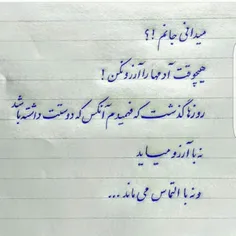 میدانی جانم !؟
هیچوقت آدمها را آرزو نکن !
روزها گذشت که فهمیدم آنکس که دوستت داشته باشد
نه با آرزو میاید
و نه با التماس می ماند ...